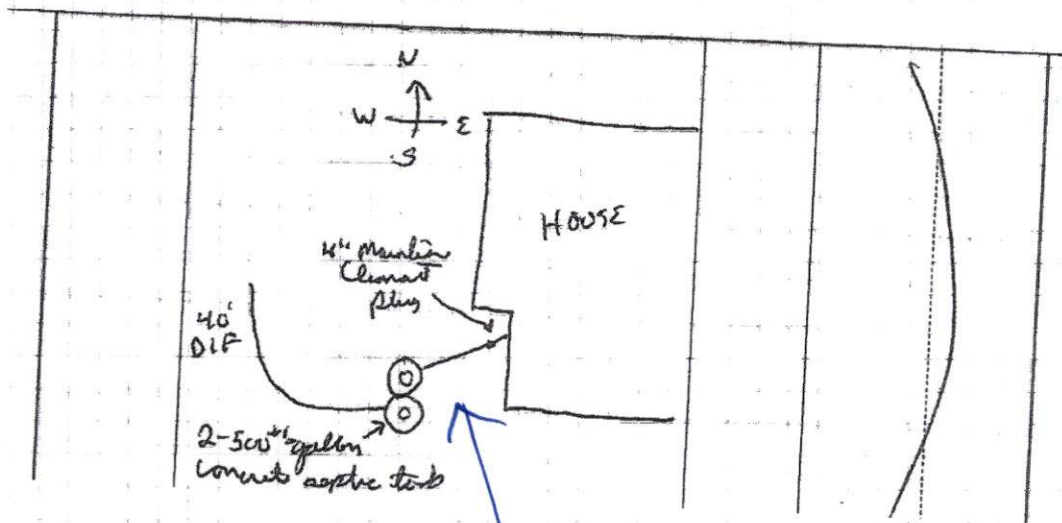 N
W E
S
HOUSE
4" Mainline
Cleanout
plug
40'
DIF
2-500 gallon
concrete septic tank